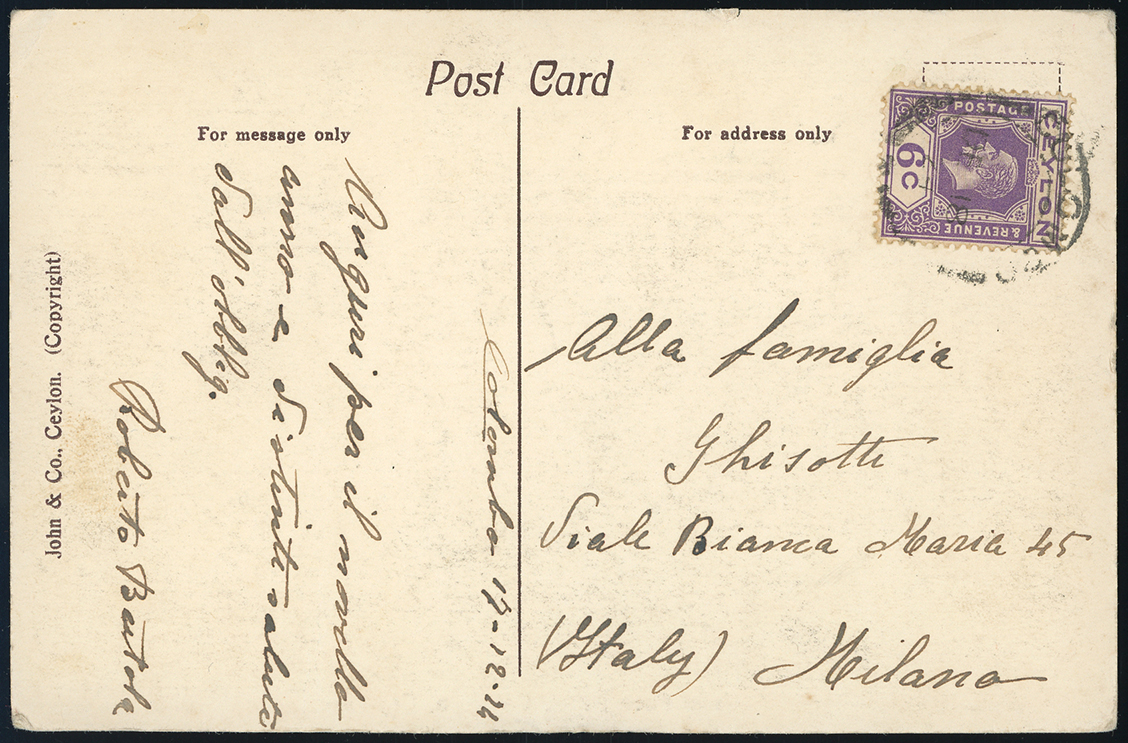 Post Card
For message only
For address only
POSTAGE
& REVENUE
CEYLON
6c
Colombo 17-12-24
Auguri per il novello
anno e distinti saluti
dall'obblig.
Roberto
John & Co., Ceylon. (Copyright)
Alla famiglia
Ghisotti
Viale Bianca Maria 45
(Italy) Milano